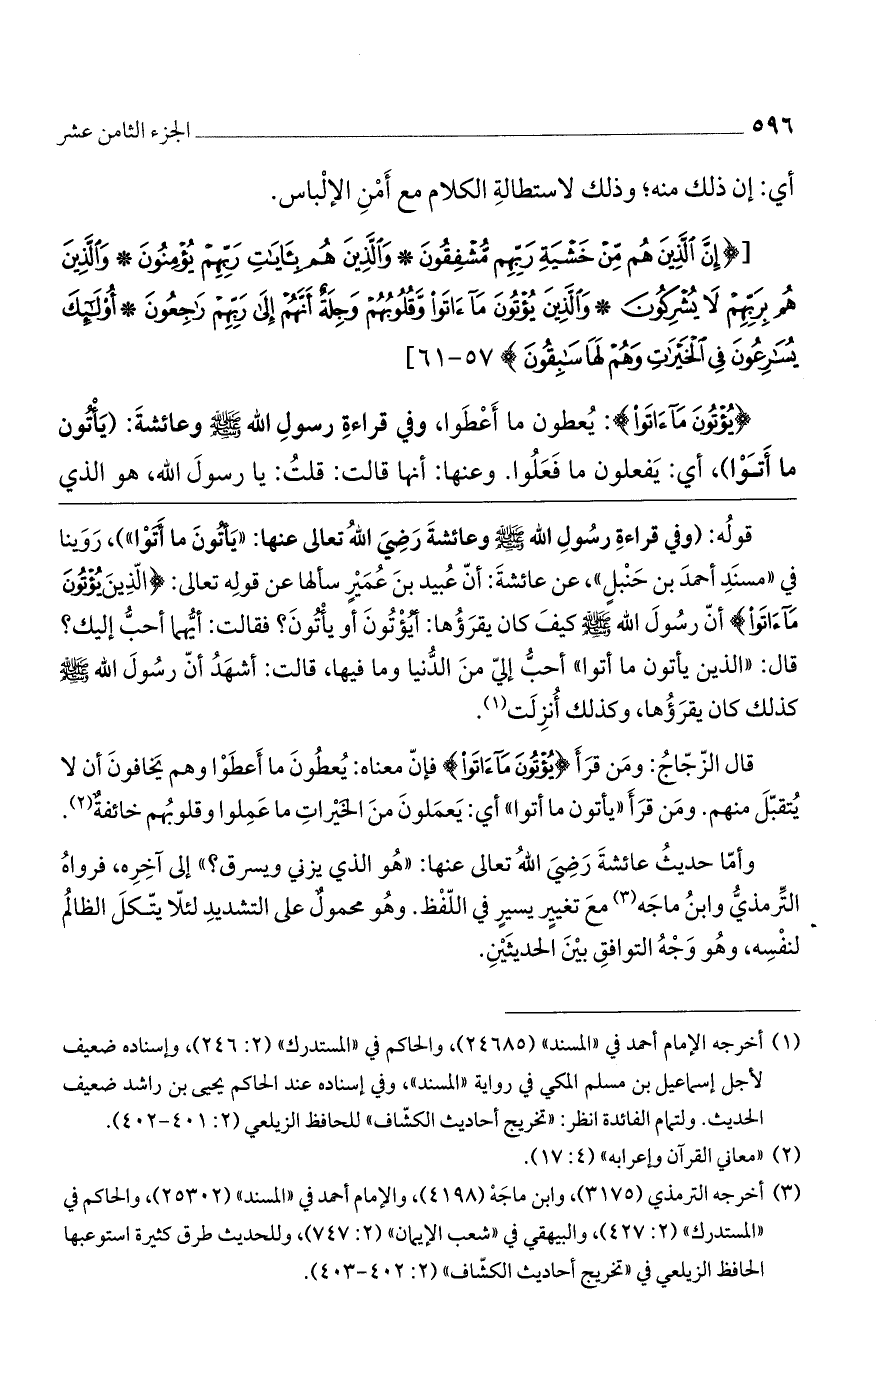 ٥٩٦ ــــــــــــــــــــــــــــــــــــــــ الجزء الثامن عشر
أي: إن ذلك منه؛ وذلك لاستطالةِ الكلام مع أَمْنِ الإلْباس.
[﴿إِنَّ ٱلَّذِينَ هُم مِّنْ خَشْيَةِ رَبِّهِم مُّشْفِقُونَ * وَٱلَّذِينَ هُم بِـَٔايَٰتِ رَبِّهِمْ يُؤْمِنُونَ * وَٱلَّذِينَ
هُم بِرَبِّهِمْ لَا يُشْرِكُونَ * وَٱلَّذِينَ يُؤْتُونَ مَآ ءَاتَوا۟ وَّقُلُوبُهُمْ وَجِلَةٌ أَنَّهُمْ إِلَىٰ رَبِّهِمْ رَٰجِعُونَ * أُو۟لَٰٓئِكَ
يُسَٰرِعُونَ فِى ٱلْخَيْرَٰتِ وَهُمْ لَهَا سَٰبِقُونَ﴾ ٥٧-٦١]
﴿يُؤْتُونَ مَآ ءَاتَوا۟﴾: يُعطون ما أَعْطَوا، وفي قراءةِ رسولِ الله ﷺ وعائشةَ: (يَأْتُون
ما أَتَـوْا)، أي: يَفعلون ما فَعَلُوا. وعنها: أنها قالت: قلتُ: يا رسولَ الله، هو الذي
قولُه: (وفي قراءةِ رسُولِ الله ﷺ وعائشةَ رَضِيَ اللهُ تعالى عنها: «يَأتُونَ ما أَتَوْا»)، رَوَينا
في «مسنَدِ أحمدَ بن حَنْبلٍ»، عن عائشةَ: أنّ عُبيد بنَ عُمَيْرٍ سألها عن قولِه تعالى: ﴿الَّذِينَ يُؤْتُونَ
مَآ ءَاتَوا۟﴾ أنّ رسُولَ الله ﷺ كيفَ كان يقرَؤُها: أيُؤْتُونَ أو يأْتُونَ؟ فقالت: أيُّهما أحبُّ إليك؟
قال: «الذين يأتون ما أتوا» أحبُّ إليّ منَ الدُّنيا وما فيها، قالت: أشهَدُ أنّ رسُولَ الله ﷺ
كذلك كان يقرَؤُها، وكذلك أُنزِلَت(١).
قال الزّجّاجُ: ومَن قرَأَ ﴿يُؤْتُونَ مَآ ءَاتَوا۟﴾ فإنّ معناه: يُعطُونَ ما أَعطَوْا وهم يَخافونَ أن لا
يُتقبّلَ منهم. ومَن قرَأَ «يأتون ما أتوا» أي: يَعمَلونَ منَ الخَيْراتِ ما عَمِلوا وقلوبُهم خائفةٌ(٢).
وأمّا حديثُ عائشةَ رَضِيَ اللهُ تعالى عنها: «هُو الذي يزني ويسرق؟» إلى آخِرِه، فرواهُ
التِّرمذيُّ وابنُ ماجَه(٣) معَ تغييرٍ يسيرٍ في اللّفْظ. وهُو محمولٌ على التشديدِ لئلّا يتّـكلَ الظالمُ
لنفْسِه، وهُو وَجْهُ التوافقِ بيْنَ الحديثَيْنِ.
(١) أخرجه الإمام أحمد في «المسند» (٢٤٦٨٥)، والحاكم في «المستدرك» (٢: ٢٤٦)، وإسناده ضعيف
لأجل إسماعيل بن مسلم المكي في رواية «المسند»، وفي إسناده عند الحاكم يحيى بن راشد ضعيف
الحديث. ولتمام الفائدة انظر: «تخريج أحاديث الكشّاف» للحافظ الزيلعي (٢: ٤٠١-٤٠٢).
(٢) «معاني القرآن وإعرابه» (٤: ١٧).
(٣) أخرجه الترمذي (٣١٧٥)، وابن ماجَهْ (٤١٩٨)، والإمام أحمد في «المسند» (٢٥٣٠٢)، والحاكم في
«المستدرك» (٢: ٤٢٧)، والبيهقي في «شعب الإيمان» (٢: ٧٤٧)، وللحديث طرق كثيرة استوعبها
الحافظ الزيلعي في «تخريج أحاديث الكشّاف» (٢: ٤٠٢-٤٠٣).